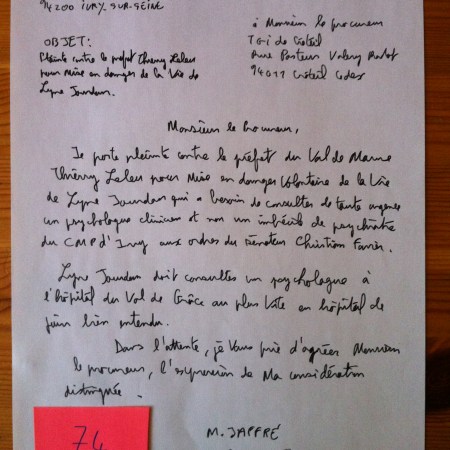 94200 IVRY-SUR-SEINE
à Monsieur le procureur
TGI de Créteil
Rue Pasteur Valery Radot
94011 Créteil Cedex
OBJET:
Plainte contre le préfet Thierry Leleu
pour Mise en danger de la Vie de
Lyne Jourdan.
Monsieur le Procureur,
Je porte plainte contre le préfet du Val de Marne
Thierry Leleu pour Mise en danger Volontaire de la Vie
de Lyne Jourdan qui a besoin de consulter de toute urgence
un psychologue clinicien et non un imbécile de psychiatre
du CMP d'Ivry aux ordres du Sénateur Christian Favier.
Lyne Jourdan doit consulter un psychologue à
l'hôpital du Val de Grâce au plus Vite en hôpital de
jour bien entendu.
Dans l'attente, je Vous prie d'agréer Monsieur
le procureur, l'expression de Ma considération
distinguée.
M. JAFFRÉ
74